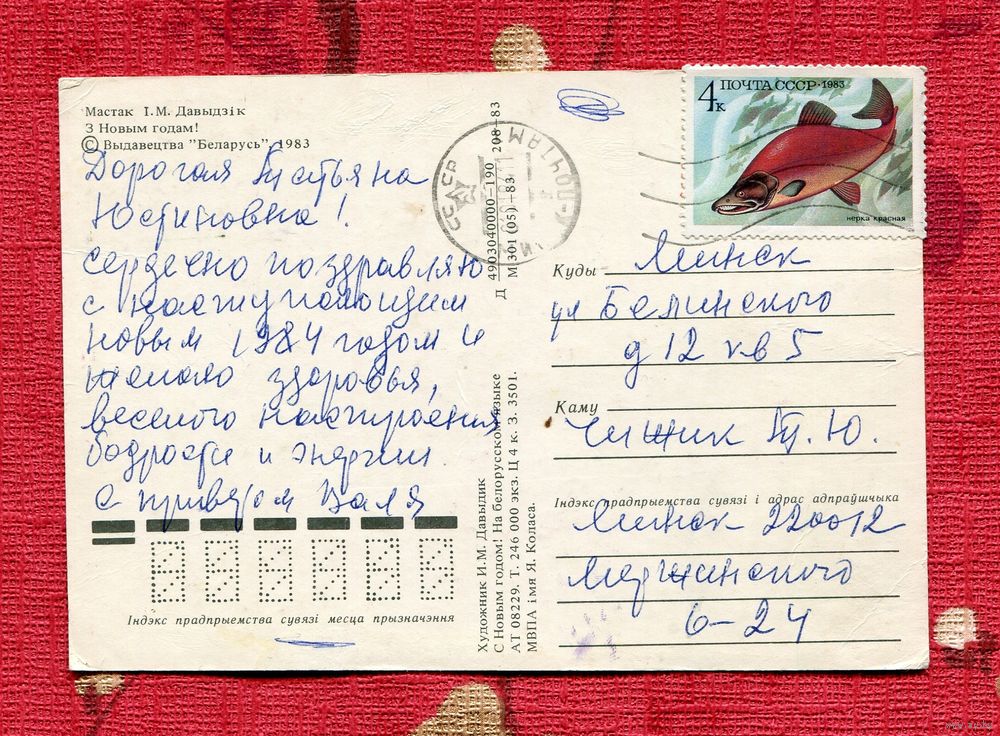 Мастак І.М. Давыдзік
З Новым годам!
© Выдавецтва "Беларусь", 1983
Дорогая Татьяна
Юстиновна!
сердечно поздравляю
с наступающим
новым 1984 годом и
желаю здоровья,
веселого настроения
бодрости и энергии
с приветом Валя
Індэкс прадпрыемства сувязі месца прызначэння
Художник И.М. Давыдик
С Новым годом! На белорусском языке
АТ 08229. Т. 246 000 экз. Ц 4 к. З. 3501.
МВПА імя Я. Коласа.
Д 4903040000—190 208—83
М 301(05)—83
СССР
ПОЧТАМТ
4к ПОЧТА СССР·1983
нерка красная
Куды Минск
ул Белинского
д 12 кв 5
Каму
Чижик Т. Ю.
Індэкс прадпрыемства сувязі і адрас адпраўшчыка
Минск 220012
6-24